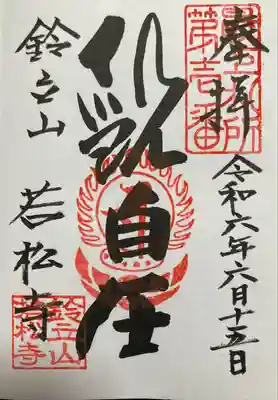 奉拝
第壱番
令和六年六月十五日
自在
鈴立山 若松寺
鈴立山
若松寺